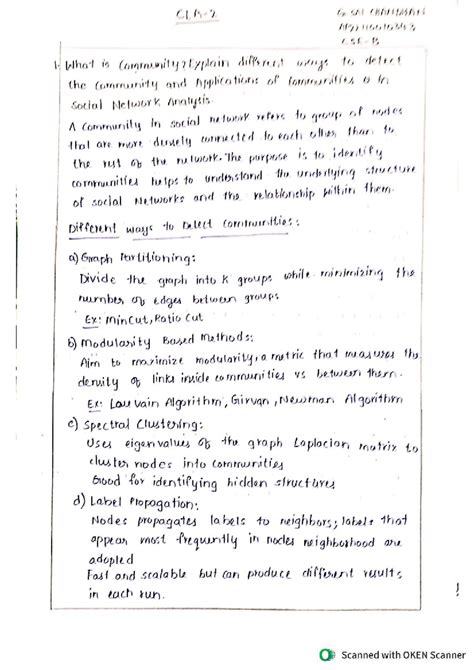 CLA-2
G. SAI
CSE-B
1. What is Community? Explain different ways to detect
the Community and Applications of Communities in
Social Network Analysis.
A Community in social network refers to group of nodes
that are more densely connected to each other than to
the rest of the network. The purpose is to identify
communities helps to understand the underlying structure
of social Networks and the relationship within them.
Different ways to Detect Communities:
a) Graph Partitioning:
Divide the graph into K groups while minimizing the
number of edges between groups
Ex: MinCut, Ratio Cut
b) Modularity Based Methods:
Aim to maximize modularity, a metric that measures the
density of links inside communities vs between them.
Ex: Louvain Algorithm, Girvan, Newman Algorithm
c) Spectral Clustering:
Uses eigenvalues of the graph Laplacian matrix to
cluster nodes into communities
Good for identifying hidden structures
d) Label Propagation:
Nodes propagates labels to neighbors; labels that
appear most frequently in nodes neighborhood are
adopted
Fast and scalable but can produce different results
in each run.
Scanned with OKEN Scanner